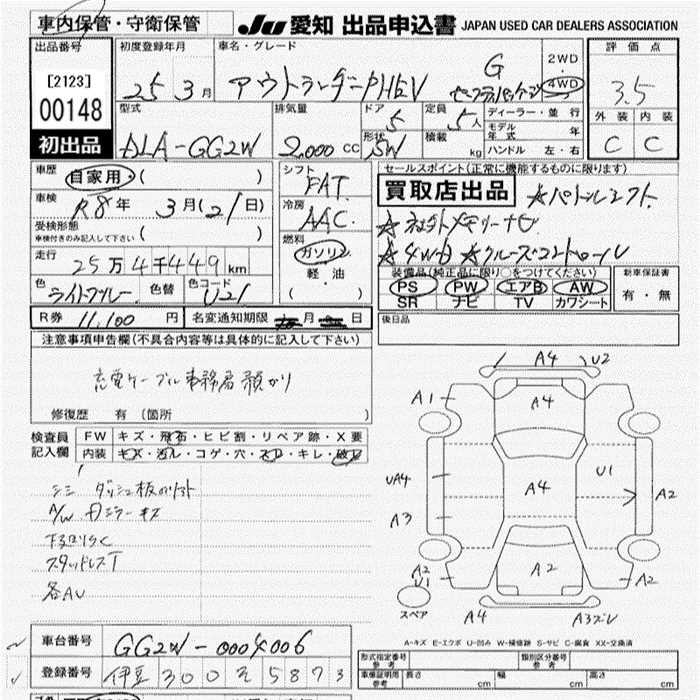 車内保管・守衛保管
JU 愛知 出品申込書 JAPAN USED CAR DEALERS ASSOCIATION
出品番号 初度登録年月 車名・グレード 評価点
[2123]
00148
初出品
25 3月 アウトランダーPHEV G 2WD・4WD 3.5
型式 排気量 ドア 定員 ディーラー・並行 外装 内装
DLA-GG2W 2,000 CC 5 5人 モデル年式 年 C C
形状 5W 積載 kg ハンドル 左・右
車歴 自家用 ( )
車検 R8年 3月(21日)
受検形態 ( )
車検付きのみ記入して下さい
走行 25万4千449km
色 色替 色コード U21
シフト FAT
冷房 AAC
燃料 ガソリン 軽油
セールスポイント(正常に機能するものに限ります)
買取店出品 ☆パドルシフト
☆社外メモリーナビ
☆4WD ☆クルーズコントロール
装備品(純正品に限り○をつけてください) 新車保証書
PS PW エアB AW 有・無
SR ナビ TV カワシート
R券 11,100円 名変通知期限 月 日
後日品
注意事項申告欄(不具合内容等は具体的に記入して下さい)
充電ケーブル事務局預かり
修復歴 有(箇所 )
検査員記入欄
FW キズ・飛石・ヒビ割・リペア跡・X要
内装 キズ・汚レ・コゲ・穴・スレ・キレ・破レ
シミ ダッシュ板のリフト
A/W ドミラーキズ
下回りサビ
スタッドレスT
各AU
A4 U2
A1 A4
UA4 A4 U1
A3 A2
A2 U1 A2 A2
スペア A4 A3ズレ
A-キズ E-エクボ U-凹み W-補修跡 S-サビ C-腐食 XX-交換済
車台番号 GG2W-0004006
登録番号 伊豆 300 そ 5873
形式指定番号 参考 類別区分番号 参考
車庫証明用 参考 長さ cm 幅 cm 高さ cm